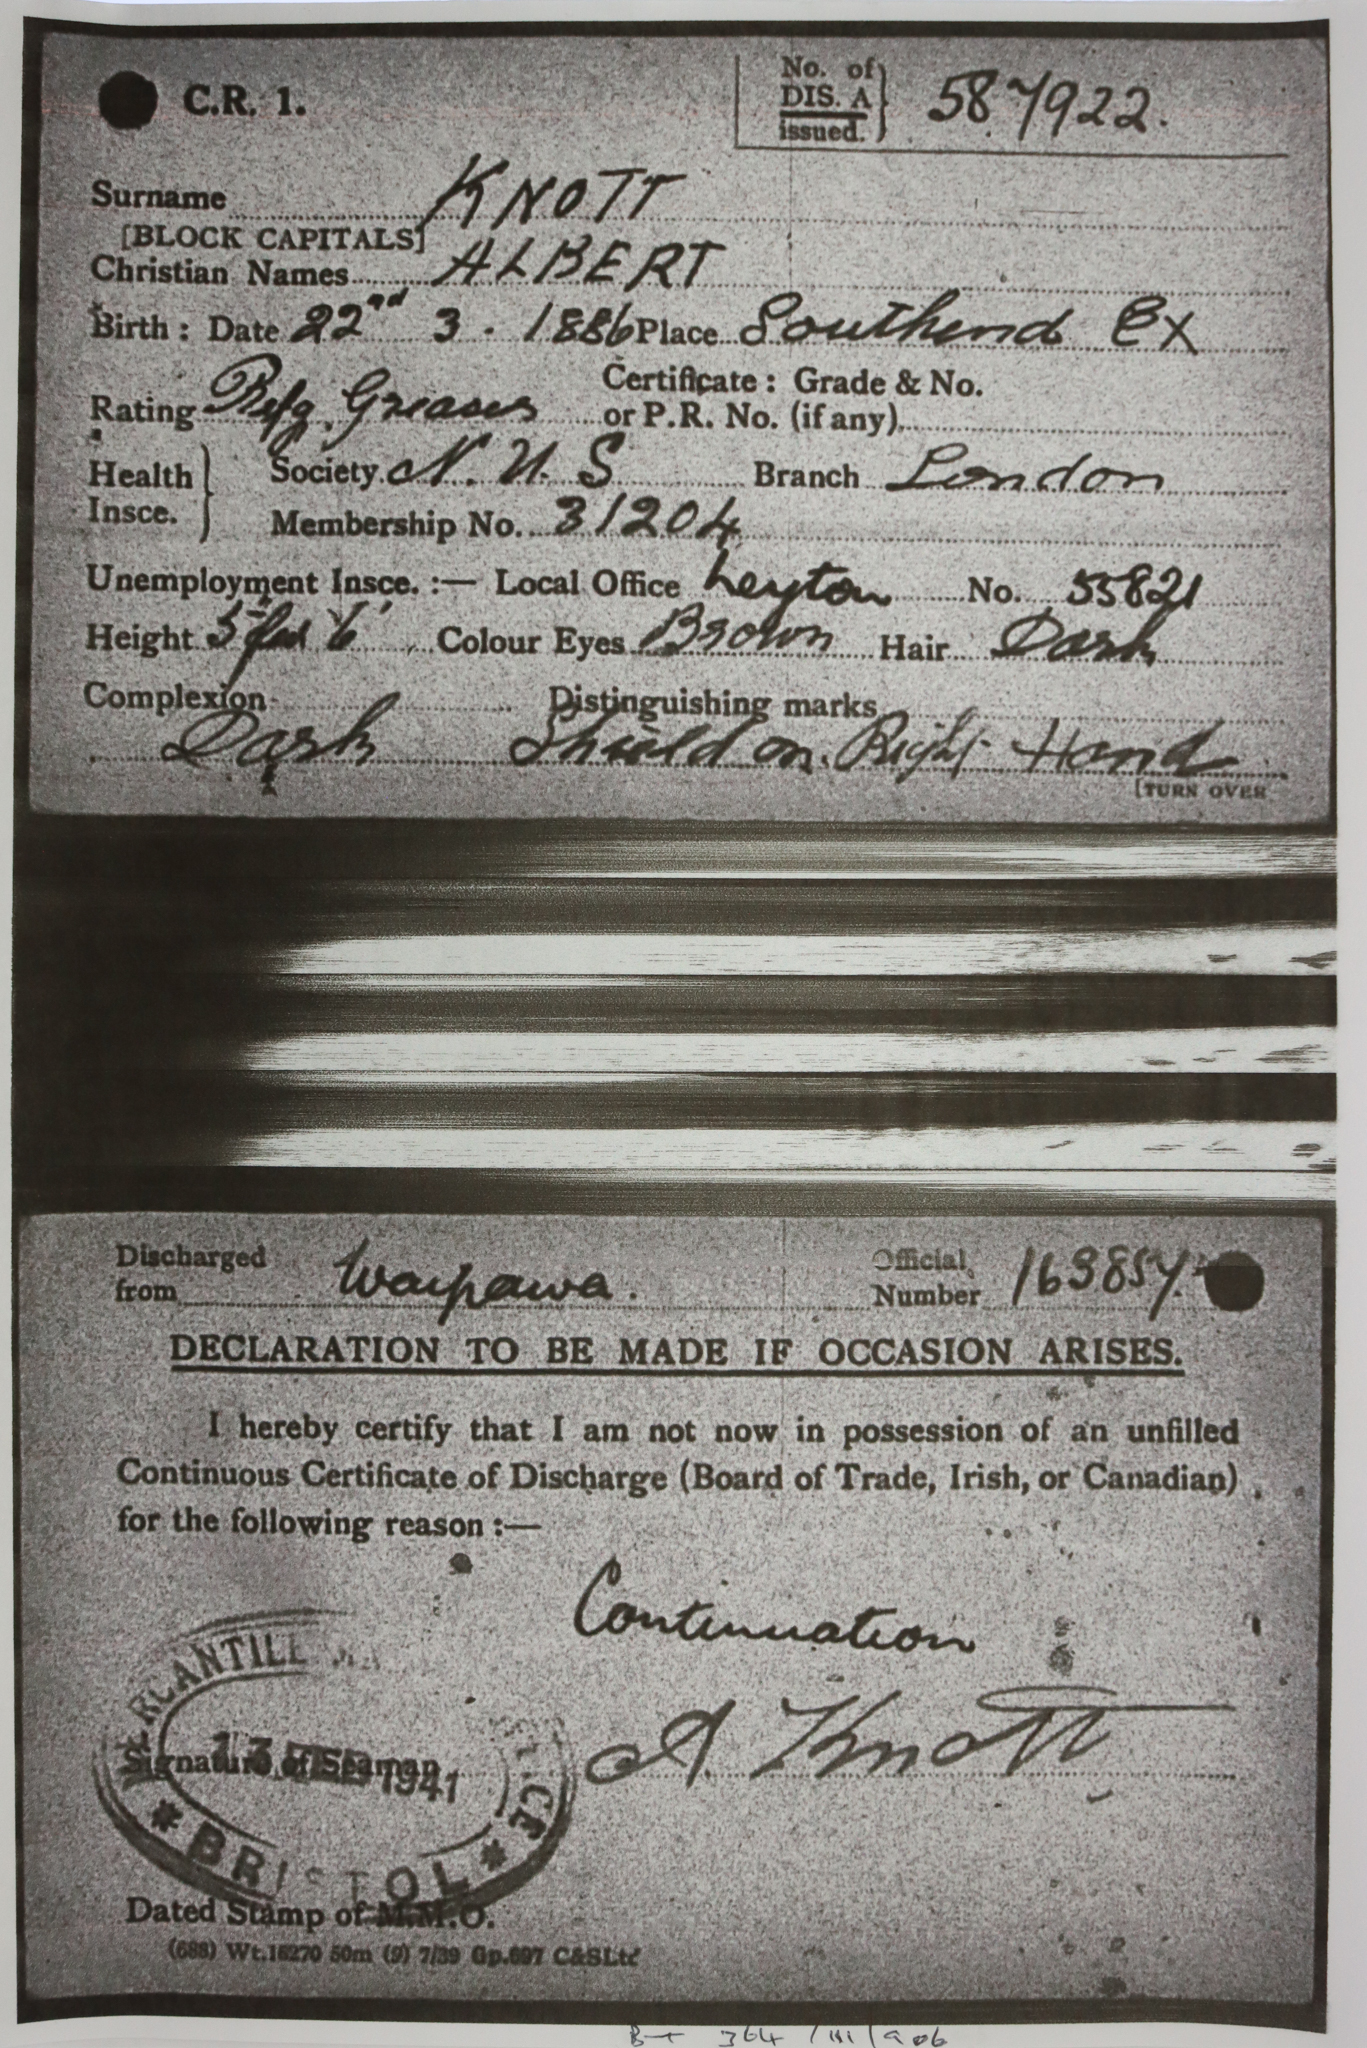 C.R. 1.
No. of
DIS. A
issued.
587922.
Surname KNOTT
[BLOCK CAPITALS]
Christian Names ALBERT
Birth: Date 22nd 3. 1886 Place Southend Ex
Rating Refg. Greaser
Certificate: Grade & No.
or P.R. No. (if any)
Health
Insce.
Society N. U. S Branch London
Membership No. 31204
Unemployment Insce. :— Local Office Leyton No. 55821
Height 5 6 Colour Eyes Brown Hair Dark
Complexion Distinguishing marks
Dark Shield on Right Hand
[TURN OVER
Discharged
from Waipawa.
Official
Number 163857.
DECLARATION TO BE MADE IF OCCASION ARISES.
I hereby certify that I am not now in possession of an unfilled
Continuous Certificate of Discharge (Board of Trade, Irish, or Canadian)
for the following reason :—
Continuation
Signature of Seaman A. Knott
1941
BRISTOL
Dated Stamp of M.M.O.
(688) Wt.18270 50m (9) 7/39 Gp.697 C&SLtd